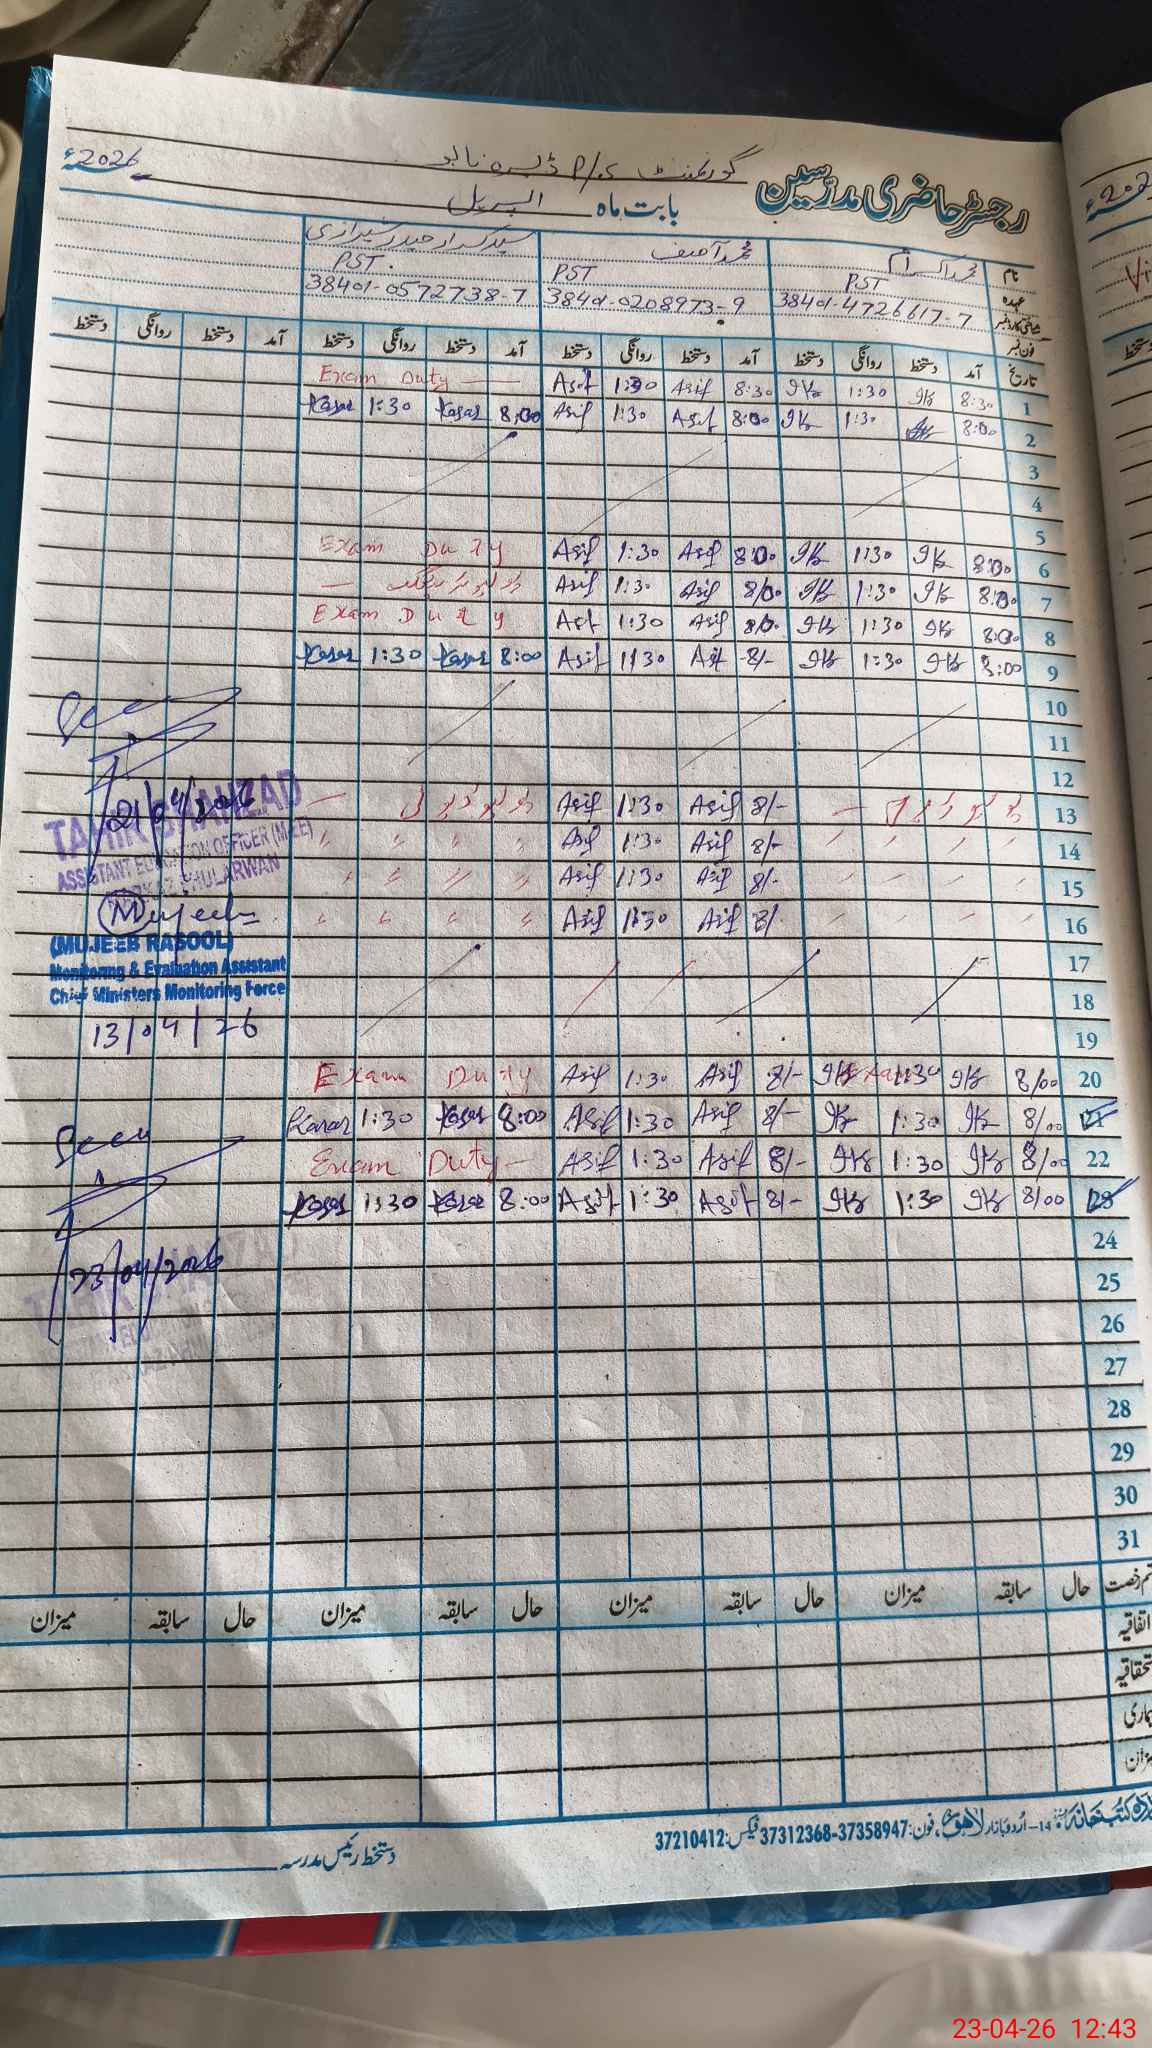 رجسٹر حاضری مدرّسین گورنمنٹ P/S ڈیرہ
بابت ماہ اپریل 2026ء
نام محمد اکرام محمد آصف سید کرار حیدر شیرازی
عہدہ PST PST PST.
شناختی کارڈ نمبر 38401-4726617-7 38401-0208973-9 38401-0572738-7
فون نمبر
تاریخ آمد دستخط روانگی دستخط آمد دستخط روانگی دستخط آمد دستخط روانگی دستخط آمد دستخط روانگی دستخط
1 8:30 1:30 8:30 Asif 1:30 Asif Exam Duty
2 8:00 1:30 8:00 Asif 1:30 Asif 8:00 Karar 1:30 Karar
3
4
5
6 8:00 1:30 8:00 Asif 1:30 Asif Exam Duty
7 8:00 1:30 8/00 Asif 1:30 Asif
8 8:00 1:30 8/0 Asif 1:30 Asif Exam Duty
9 8:00 1:30 8/- Asif 1:30 Asif 8:00 Karar 1:30 Karar
10
11
12
13 8/- Asif 1:30 Asif
14 8/- Asif 1:30 Asif
15 8/- Asif 1:30 Asif
16 8/ Asif 1:30 Asif
17
18
19
20 8/00 1:30 8/- Asif 1:30 Asif Exam Duty
21 8/00 1:30 8/- Asif 1:30 Asif 8:00 Karar 1:30 Karar
22 8/00 1:30 8/- Asif 1:30 Asif Exam Duty
23 8/00 1:30 8/- Asif 1:30 Asif 8:00 Karar 1:30 Karar
24
25
26
27
28
29
30
31
Seen
21/04/2026
TAHIR SHAHZAD
ASSISTANT EDUCATION OFFICER (M-EE)
MARKAZ PHULARWAN
Mujeeb
(MUJEEB RASOOL)
Monitoring & Evaluation Assistant
Chief Ministers Monitoring Force
13/04/26
Seen
23/04/2026
حال سابقہ میزان حال سابقہ میزان حال سابقہ میزان حال سابقہ میزان
اتفاقیہ
میزان
14- اُردو بازار لاہور، فون: 37358947-37312368 فیکس: 37210412
دستخط رئیس مدرسہ
23-04-26 12:43